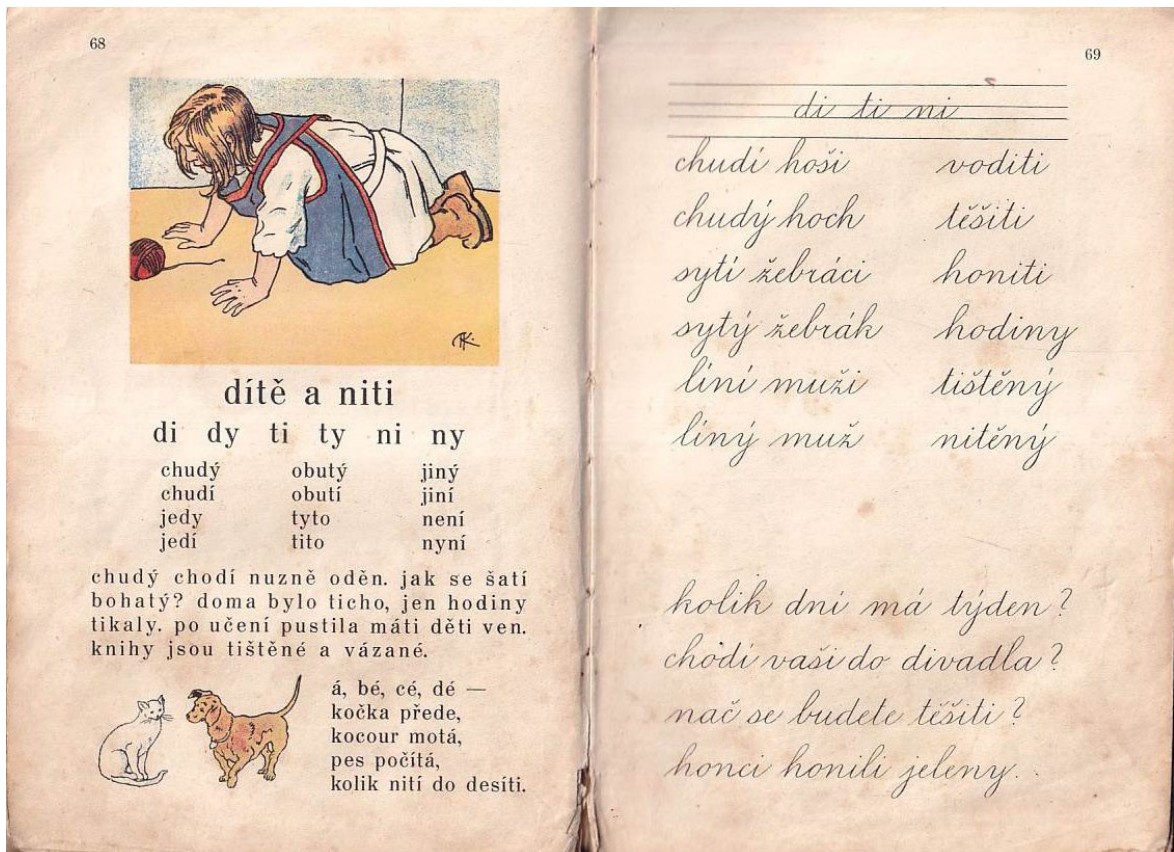 68
K.
dítě a niti
di dy ti ty ni ny
chudý obutý jiný
chudí obutí jiní
jedy tyto není
jedí tito nyní
chudý chodí nuzně oděn. jak se šatí
bohatý? doma bylo ticho, jen hodiny
tikaly. po učení pustila máti děti ven.
knihy jsou tištěné a vázané.
á, bé, cé, dé —
kočka přede,
kocour motá,
pes počítá,
kolik nití do desíti.
69
di ti ni
chudí hoši voditi
chudý hoch těšiti
sytí žebráci honiti
sytý žebrák hodiny
líní muži tištěný
líný muž nitěný
kolik dní má týden?
chodí vaši do divadla?
nač se budete těšiti?
honci honili jeleny.